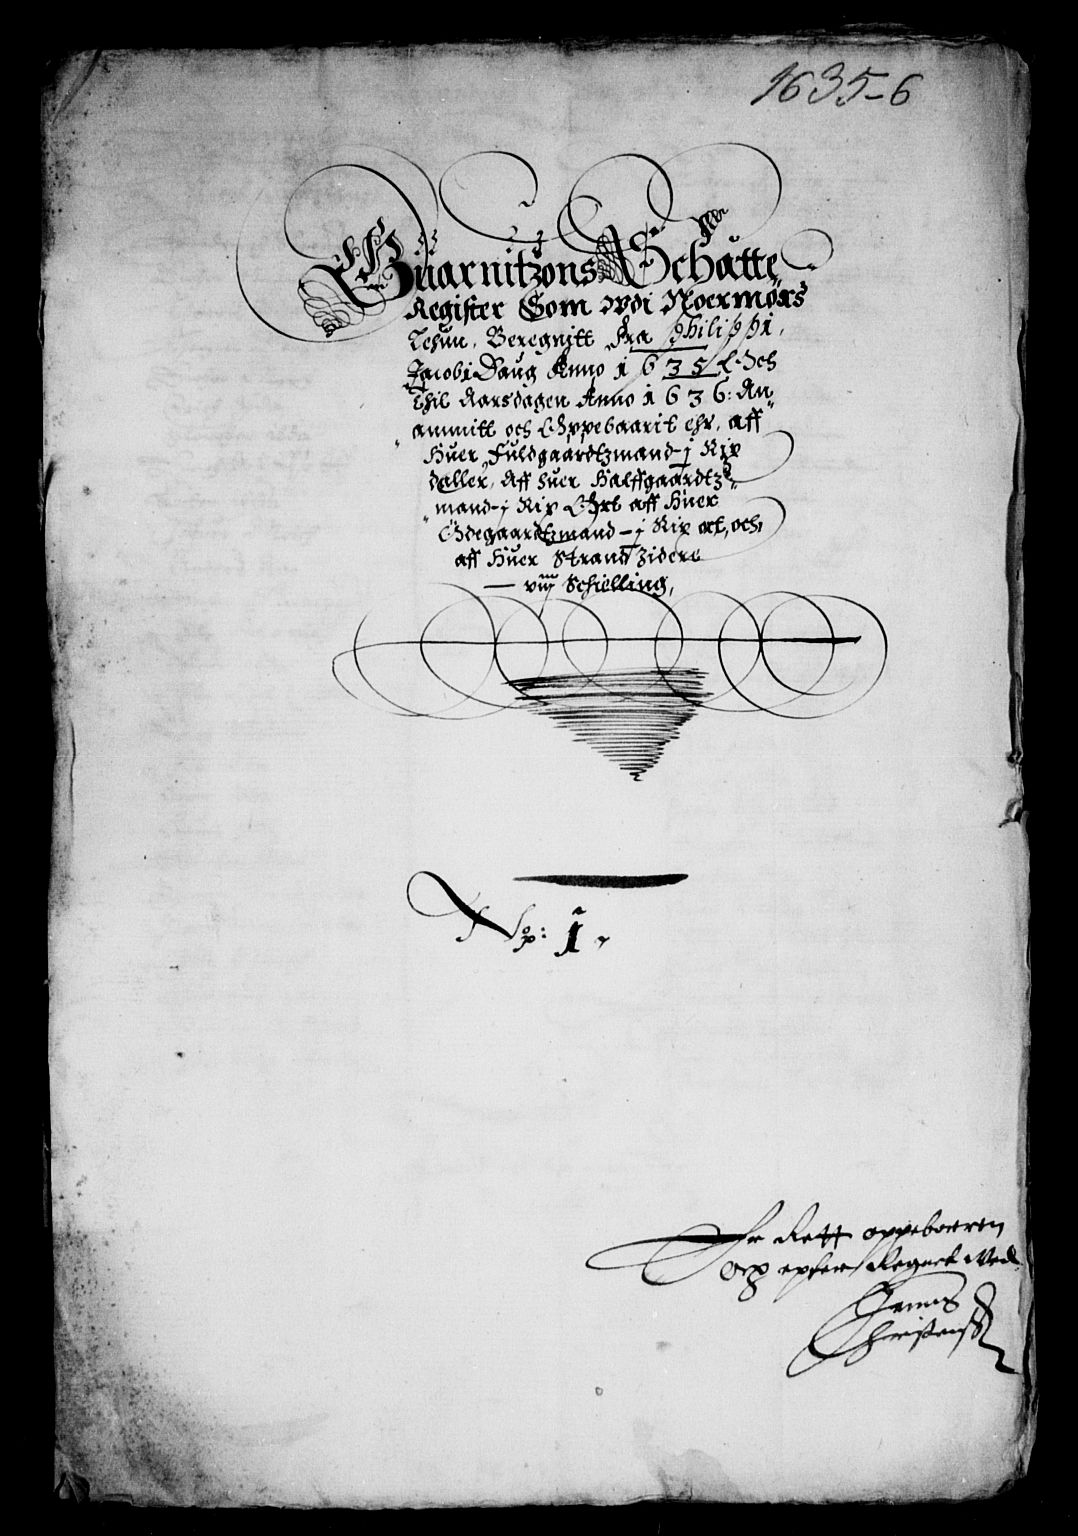 1635-6
Guarnitzons Schatte
Register Som wdi Noermørs
Lehun, Beregnitt fra Philippi
Jacobi Daug Anno 1635 Och
Thil Aarsdagen Anno 1636: An
ammitt och Oppebaarit ehr, aff
Huer Fuldgaardtzmand - j Rix
daller, Aff huer Halffgaardtz
mand - j Rix Ort aff Huer
Ødegaardtzmand - j Rix ort, och
aff Huer Strandzidere
— viij Schielling,
No: 1
Er Rett oppeboeren
och epter Regnet Ved
Jennis
Christenss